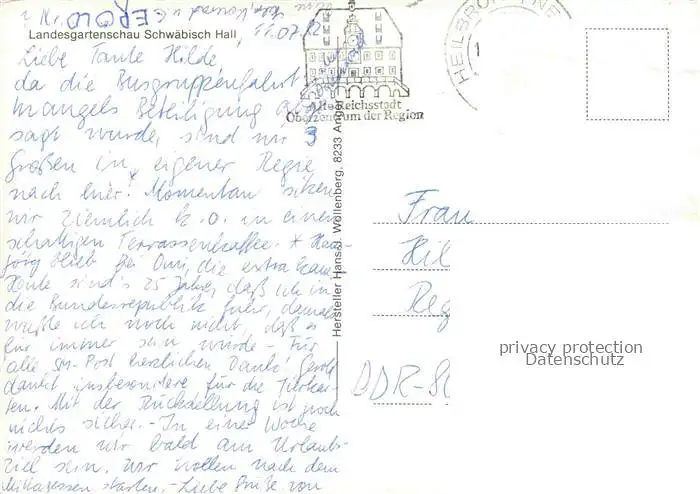 GEROLD
Landesgartenschau Schwäbisch Hall, 11.07.82
Liebe Tante Hilde,
da die Busgruppenfahrt
mangels Beteiligung abge-
sagt wurde, sind wir 3
Großen in eigener Regie
nach hier! Momentan sitzen
wir ziemlich k.o. in einem
schattigen Terrassenkaffee. * Han-
jörg blieb bei Omi, die extra kam.
Heute sind's 25 Jahre, daß ich in
die Bundesrepublik fuhr, damals
wußte ich noch nicht, daß es
für immer sein wurde - Für
alle Post herzlichen Dank! Gerold
dankt insbesondere für die Tierkar-
ten. Mit der Rückstellung ist noch
nichts sicher. - In einer Woche
werden wir bald am Urlaubs-
ziel sein. Wir wollen nach dem
Mittagessen starten. - Liebe Grüße von
Alte Reichsstadt
Oberzentrum der Region
HEILBRONN
Hersteller Hans-J. Wollenberg, 8233 Anger
Frau
Hil
Reg
DDR-80
privacy protection
Datenschutz